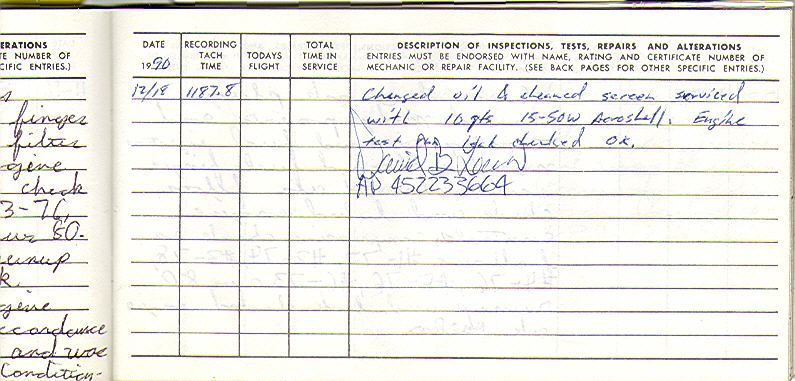 ERATIONS
TE NUMBER OF
CIFIC ENTRIES.)
s
finger
filter
gine
check
3-76,
80-
k.
gine
ccordance
and was
Condition-
DATE
1990
RECORDING
TACH
TIME
TODAYS
FLIGHT
TOTAL
TIME IN
SERVICE
DESCRIPTION OF INSPECTIONS, TESTS, REPAIRS AND ALTERATIONS
ENTRIES MUST BE ENDORSED WITH NAME, RATING AND CERTIFICATE NUMBER OF
MECHANIC OR REPAIR FACILITY. (SEE BACK PAGES FOR OTHER SPECIFIC ENTRIES.)
12/18 1187.8 Changed oil & cleaned screen serviced
with 10 qts 15-50W Aeroshell. Engine
test run leak checked OK.
David D.
AP 452233664